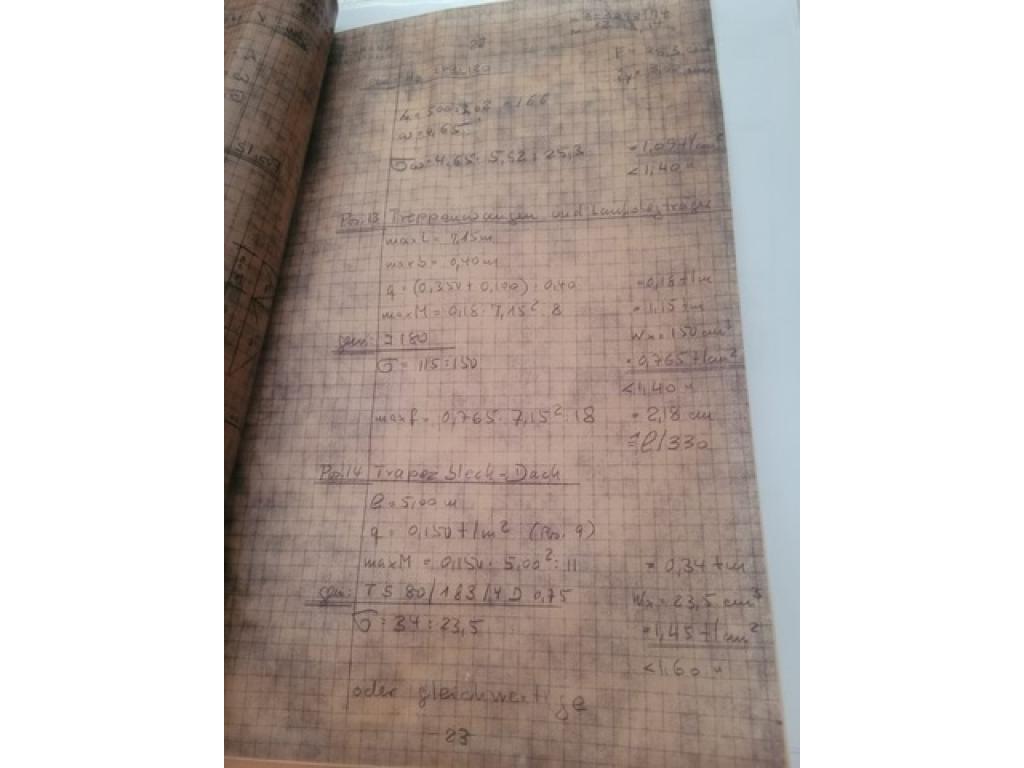 λ = 500 : 3,02 = 166
ω = 4,65
σω = 4,65 · 5,92 : 25,3 = 1,09 t/cm²
< 1,40 "
Pos. 13 Treppenwangen und
max l = 7,15 m
max b = 0,40 m
q = (0,350 + 0,100) · 0,40 = 0,18 t/m
max M = 0,18 · 7,15² : 8 = 1,15 tm
gew: I 180 Wx = 150 cm³
σ = 115 : 150 = 0,765 t/cm²
< 1,40 "
max f = 0,765 · 7,15² : 18 = 2,18 cm
= l/330
Pos. 14 Trapezblech-Dach
l = 5,00 m
q = 0,150 t/m² (Pos. 9)
max M = 0,150 · 5,00² : 11 = 0,34 tm
gew: T S 80/183/4 D 0,75 Wx = 23,5 cm³
σ = 34 : 23,5 = 1,45 t/cm²
< 1,60 "
oder gleichwertige
23